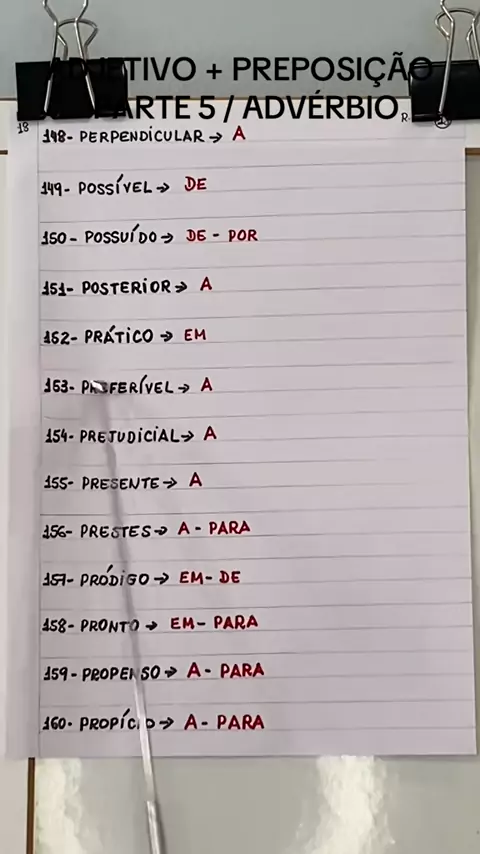 ADJETIVO + PREPOSIÇÃO
PARTE 5 / ADVÉRBIO
18
148- PERPENDICULAR → A
149- POSSÍVEL → DE
150- POSSUÍDO → DE - POR
151- POSTERIOR → A
152- PRÁTICO → EM
153- PREFERÍVEL → A
154- PREJUDICIAL → A
155- PRESENTE → A
156- PRESTES → A - PARA
157- PRÓDIGO → EM - DE
158- PRONTO → EM - PARA
159- PROPENSO → A - PARA
160- PROPÍCIO → A - PARA